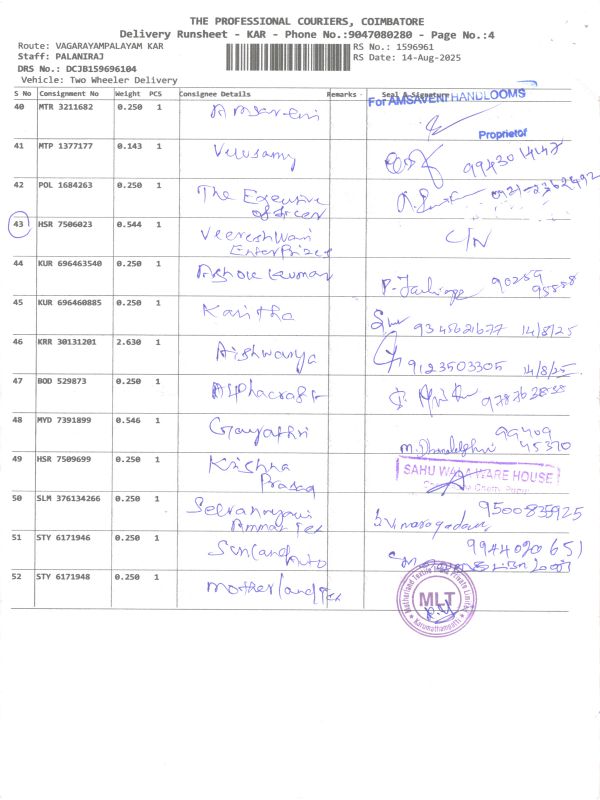 THE PROFESSIONAL COURIERS, COIMBATORE
Delivery Runsheet - KAR - Phone No.:9047080280 - Page No.:4
Route: VAGARAYAMPALAYAM KAR
RS No.: 1596961
Staff: PALANIRAJ
RS Date: 14-Aug-2025
DRS No.: DCJB159696104
Vehicle: Two Wheeler Delivery
S No Consignment No Weight PCS Consignee Details Remarks Seal & Signature
For AMSAVENI HANDLOOMS
40 MTR 3211682 0.250 1 Amsaveni
Proprietor
41 MTP 1377177 0.143 1 Velusamy
42 POL 1684263 0.250 1 The Exgecutive
officer
43 HSR 7506023 0.544 1 Veereshwari C/N
Enterprizes
44 KUR 696463540 0.250 1 Ashok Kumar 90259
95888
45 KUR 696460885 0.250 1 Kavitha 9345621677 14/8/25
46 KRR 30131201 2.630 1 Aishwarya 9123503305 14/8/25
47 BOD 529873 0.250 1 Alphacraft
48 MYD 7391899 0.546 1 Gayathri 99409
45370
49 HSR 7509699 0.250 1 Krishna
Prasad
SAHU WALA WARE HOUSE
50 SLM 376134266 0.250 1 Selvanayaki 9500835925
Amman Tex
51 STY 6171946 0.250 1 Sunland 9944020651
Auto
52 STY 6171948 0.250 1 Motherland Tex
Motherland Textile India Private Limited
MLT
Karumathampatti